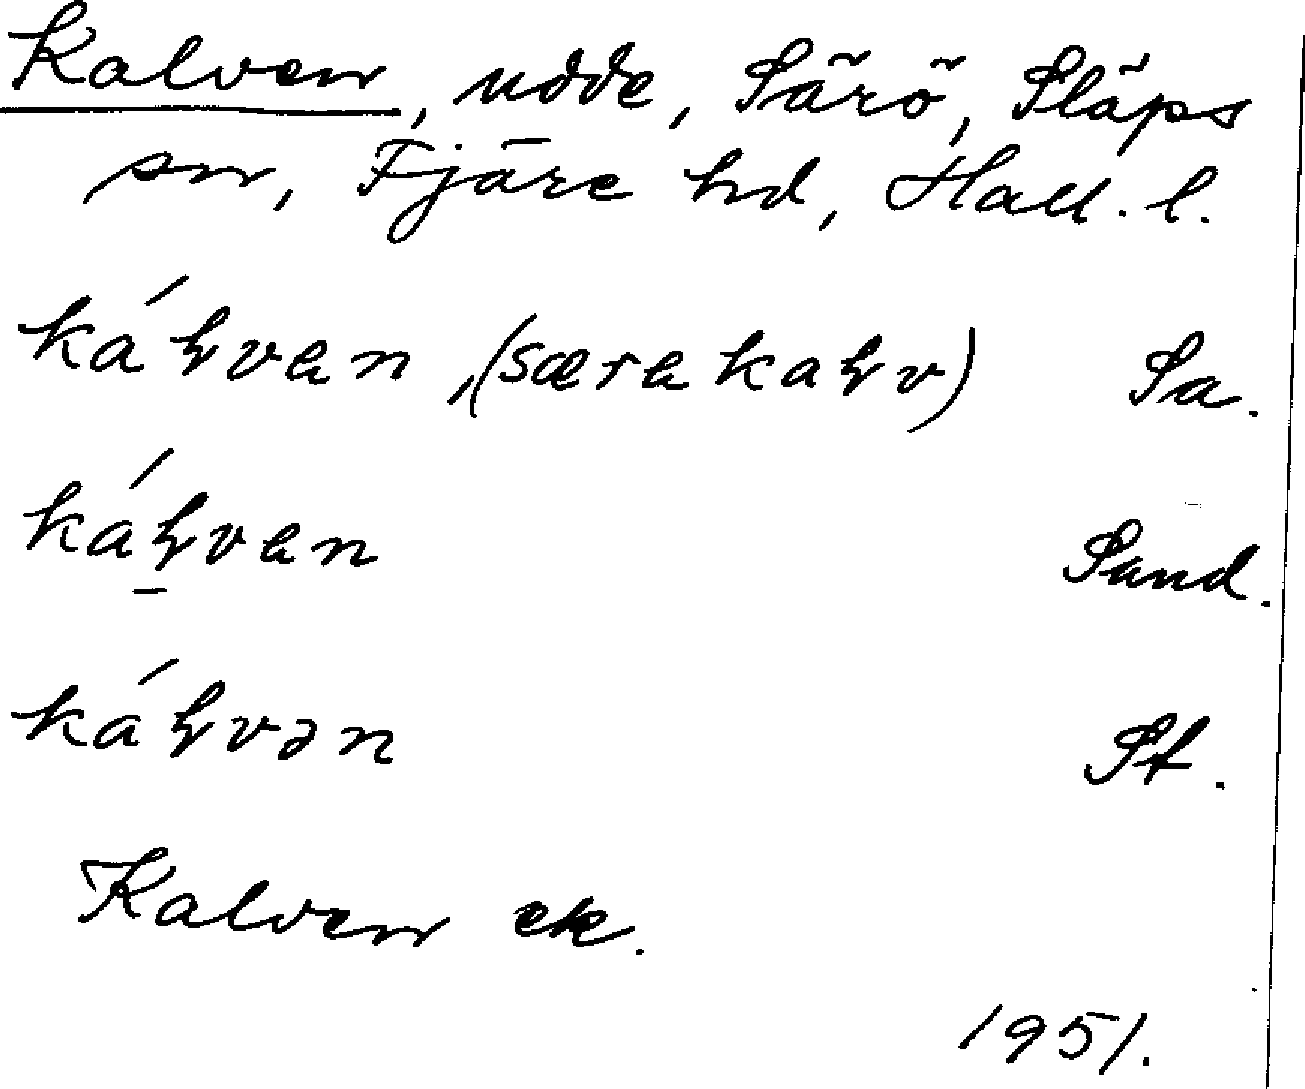 Kalven, udde, Särö, Släps
sn, Fjäre hd, Hall. l.
káɧven, (særa kaɧv) Sa.
káɧven Sand.
káɧvən St.
Kalven ek.
1951.